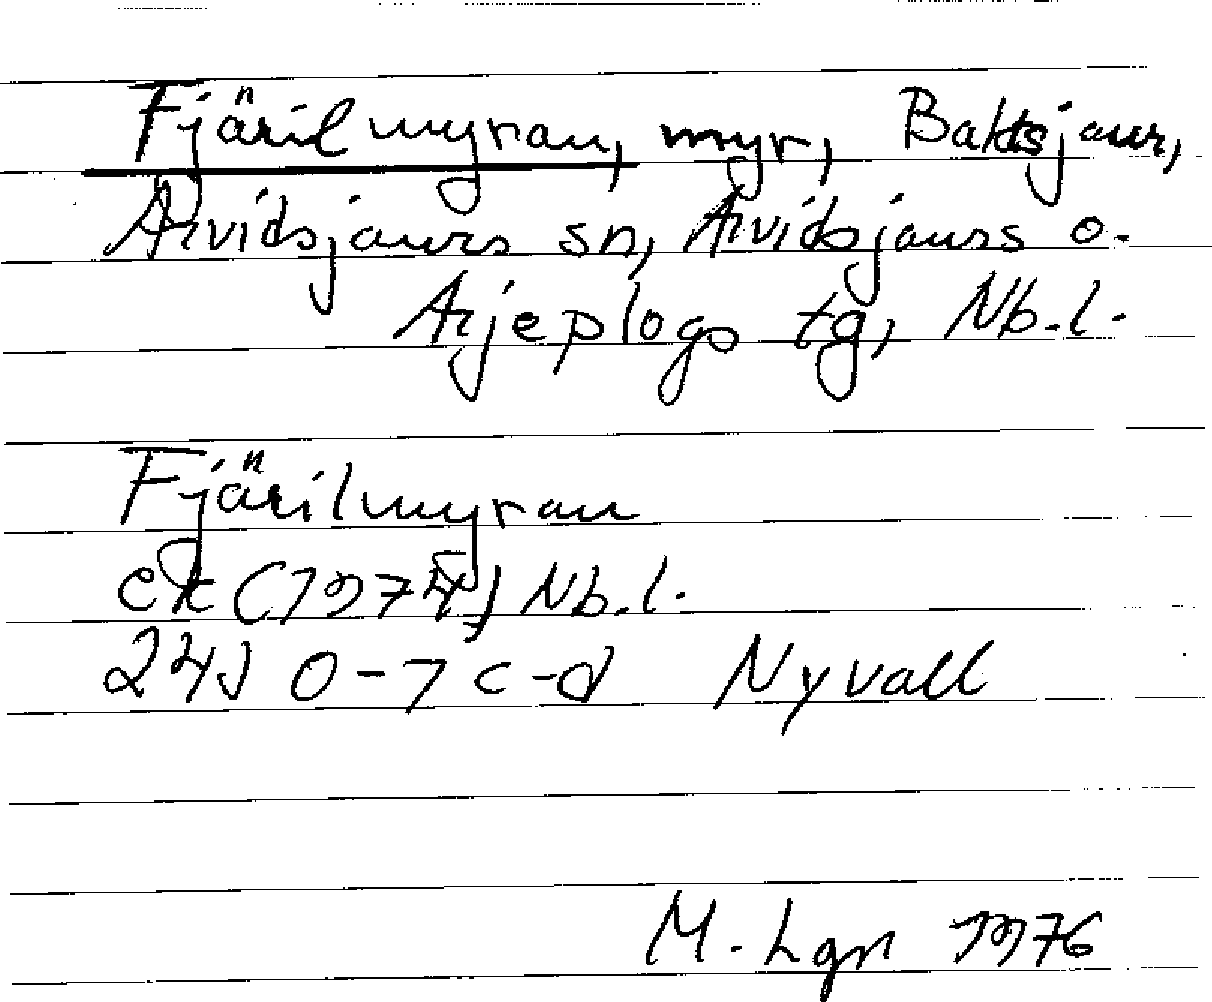 Fjärilmyran, myr, Baktsjaur,
Arvidsjaurs sn, Arvidsjaurs o.
Arjeplogs tg, Nb.l.
Fjärilmyran
ek (1974) Nb.l.
24J 0-7 c-d Nyvall
M. Lgn 1976